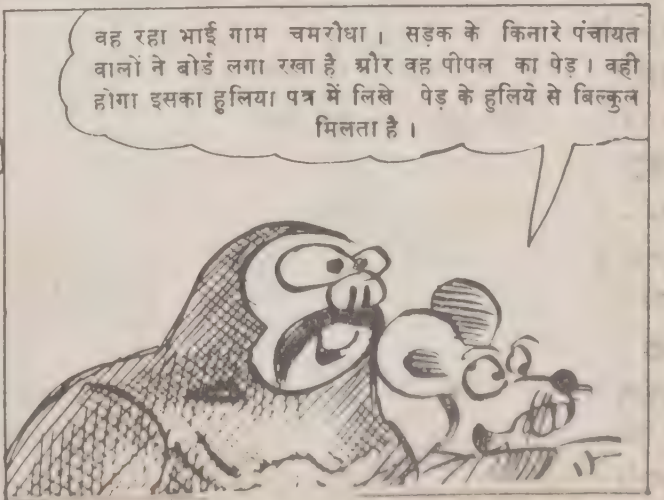 वह रहा भाई गाम चमरौधा । सड़क के किनारे पंचायत
वालों ने बोर्ड लगा रखा है और वह पीपल का पेड़ । वही
होगा इसका हुलिया पत्र में लिखे पेड़ के हुलिये से बिल्कुल
मिलता है ।